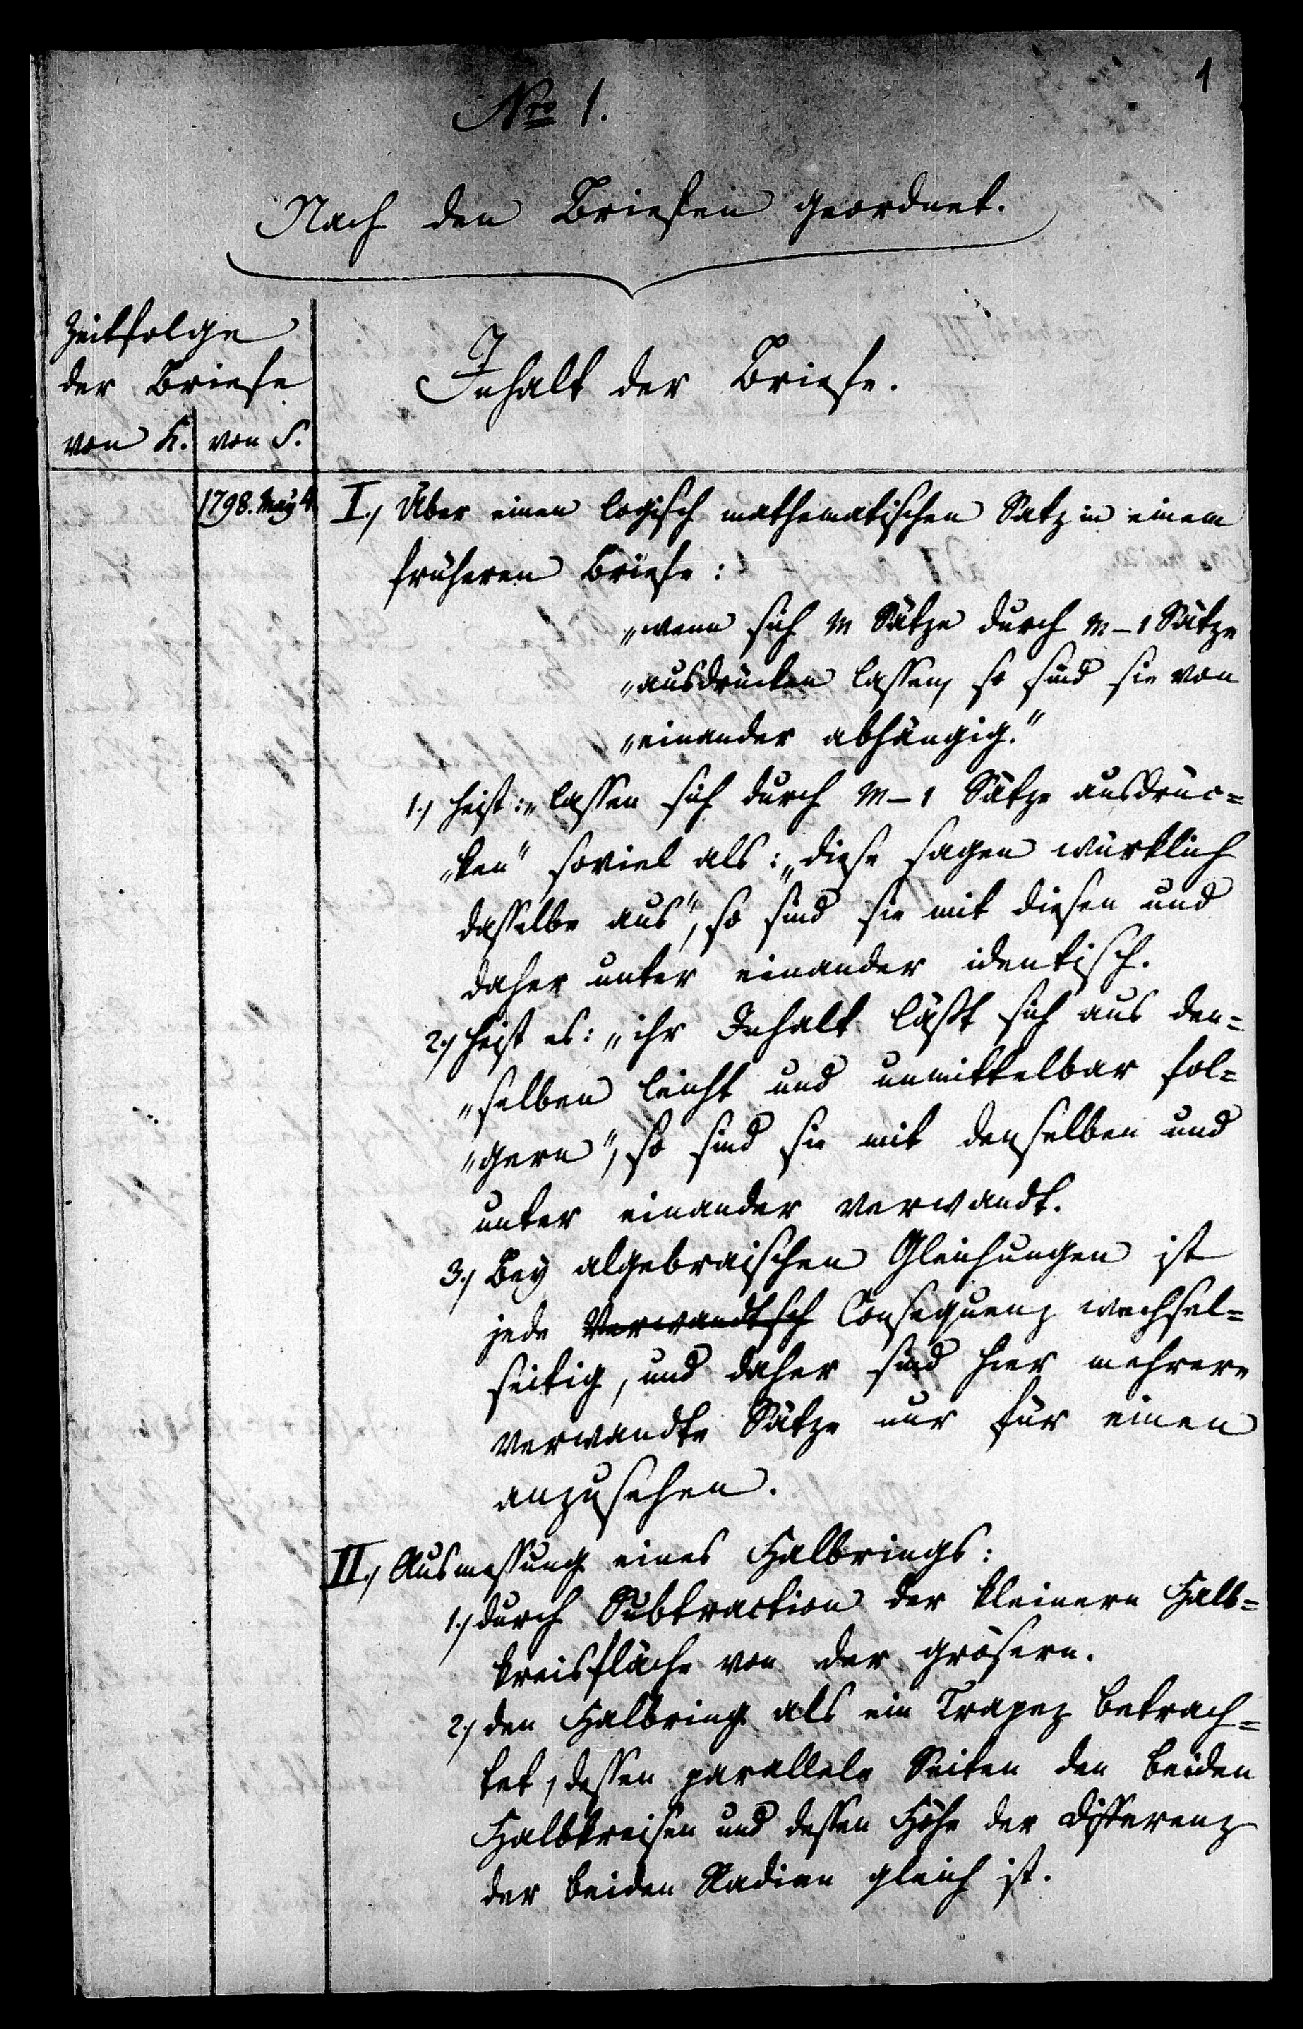 1
Nro 1.
Nach den Briefen geordnet.
Zeitfolge
der Briefe
von K. von S.
Inhalt der Briefe.
1798. May 4.
I., Über einen logisch mathematischen Satz in einem
früheren Briefe:
„wenn sich m Sätze durch m-1 Sätze
„ausdrücken lassen, so sind sie von
„einander abhängig."
1., heist: „lassen sich durch m-1 Sätze ausdrüc=
„ken" soviel als: „diese sagen würklich
dasselbe aus", so sind sie mit diesen und
daher unter einander identisch.
2., heist es: „ihr Inhalt läßt sich aus den=
„selben leicht und unmittelbar fol=
„gern", so sind sie mit denselben und
unter einander verwandt.
3., Bey algebraischen Gleichungen ist
jede Verwandtsch Consequenz wechsel=
seitig, und daher sind hier mehrere
verwandte Sätze nur für einen
anzusehen.
II., Ausmessung eines Halbrings:
1., durch Subtraction der kleinern Halb=
kreisfläche von der grösern.
2., den Halbring als ein Trapez betrach=
tet, dessen parallele Seiten den beiden
Halbkreisen und dessen Höhe der Differenz
der beiden Radien gleich ist.